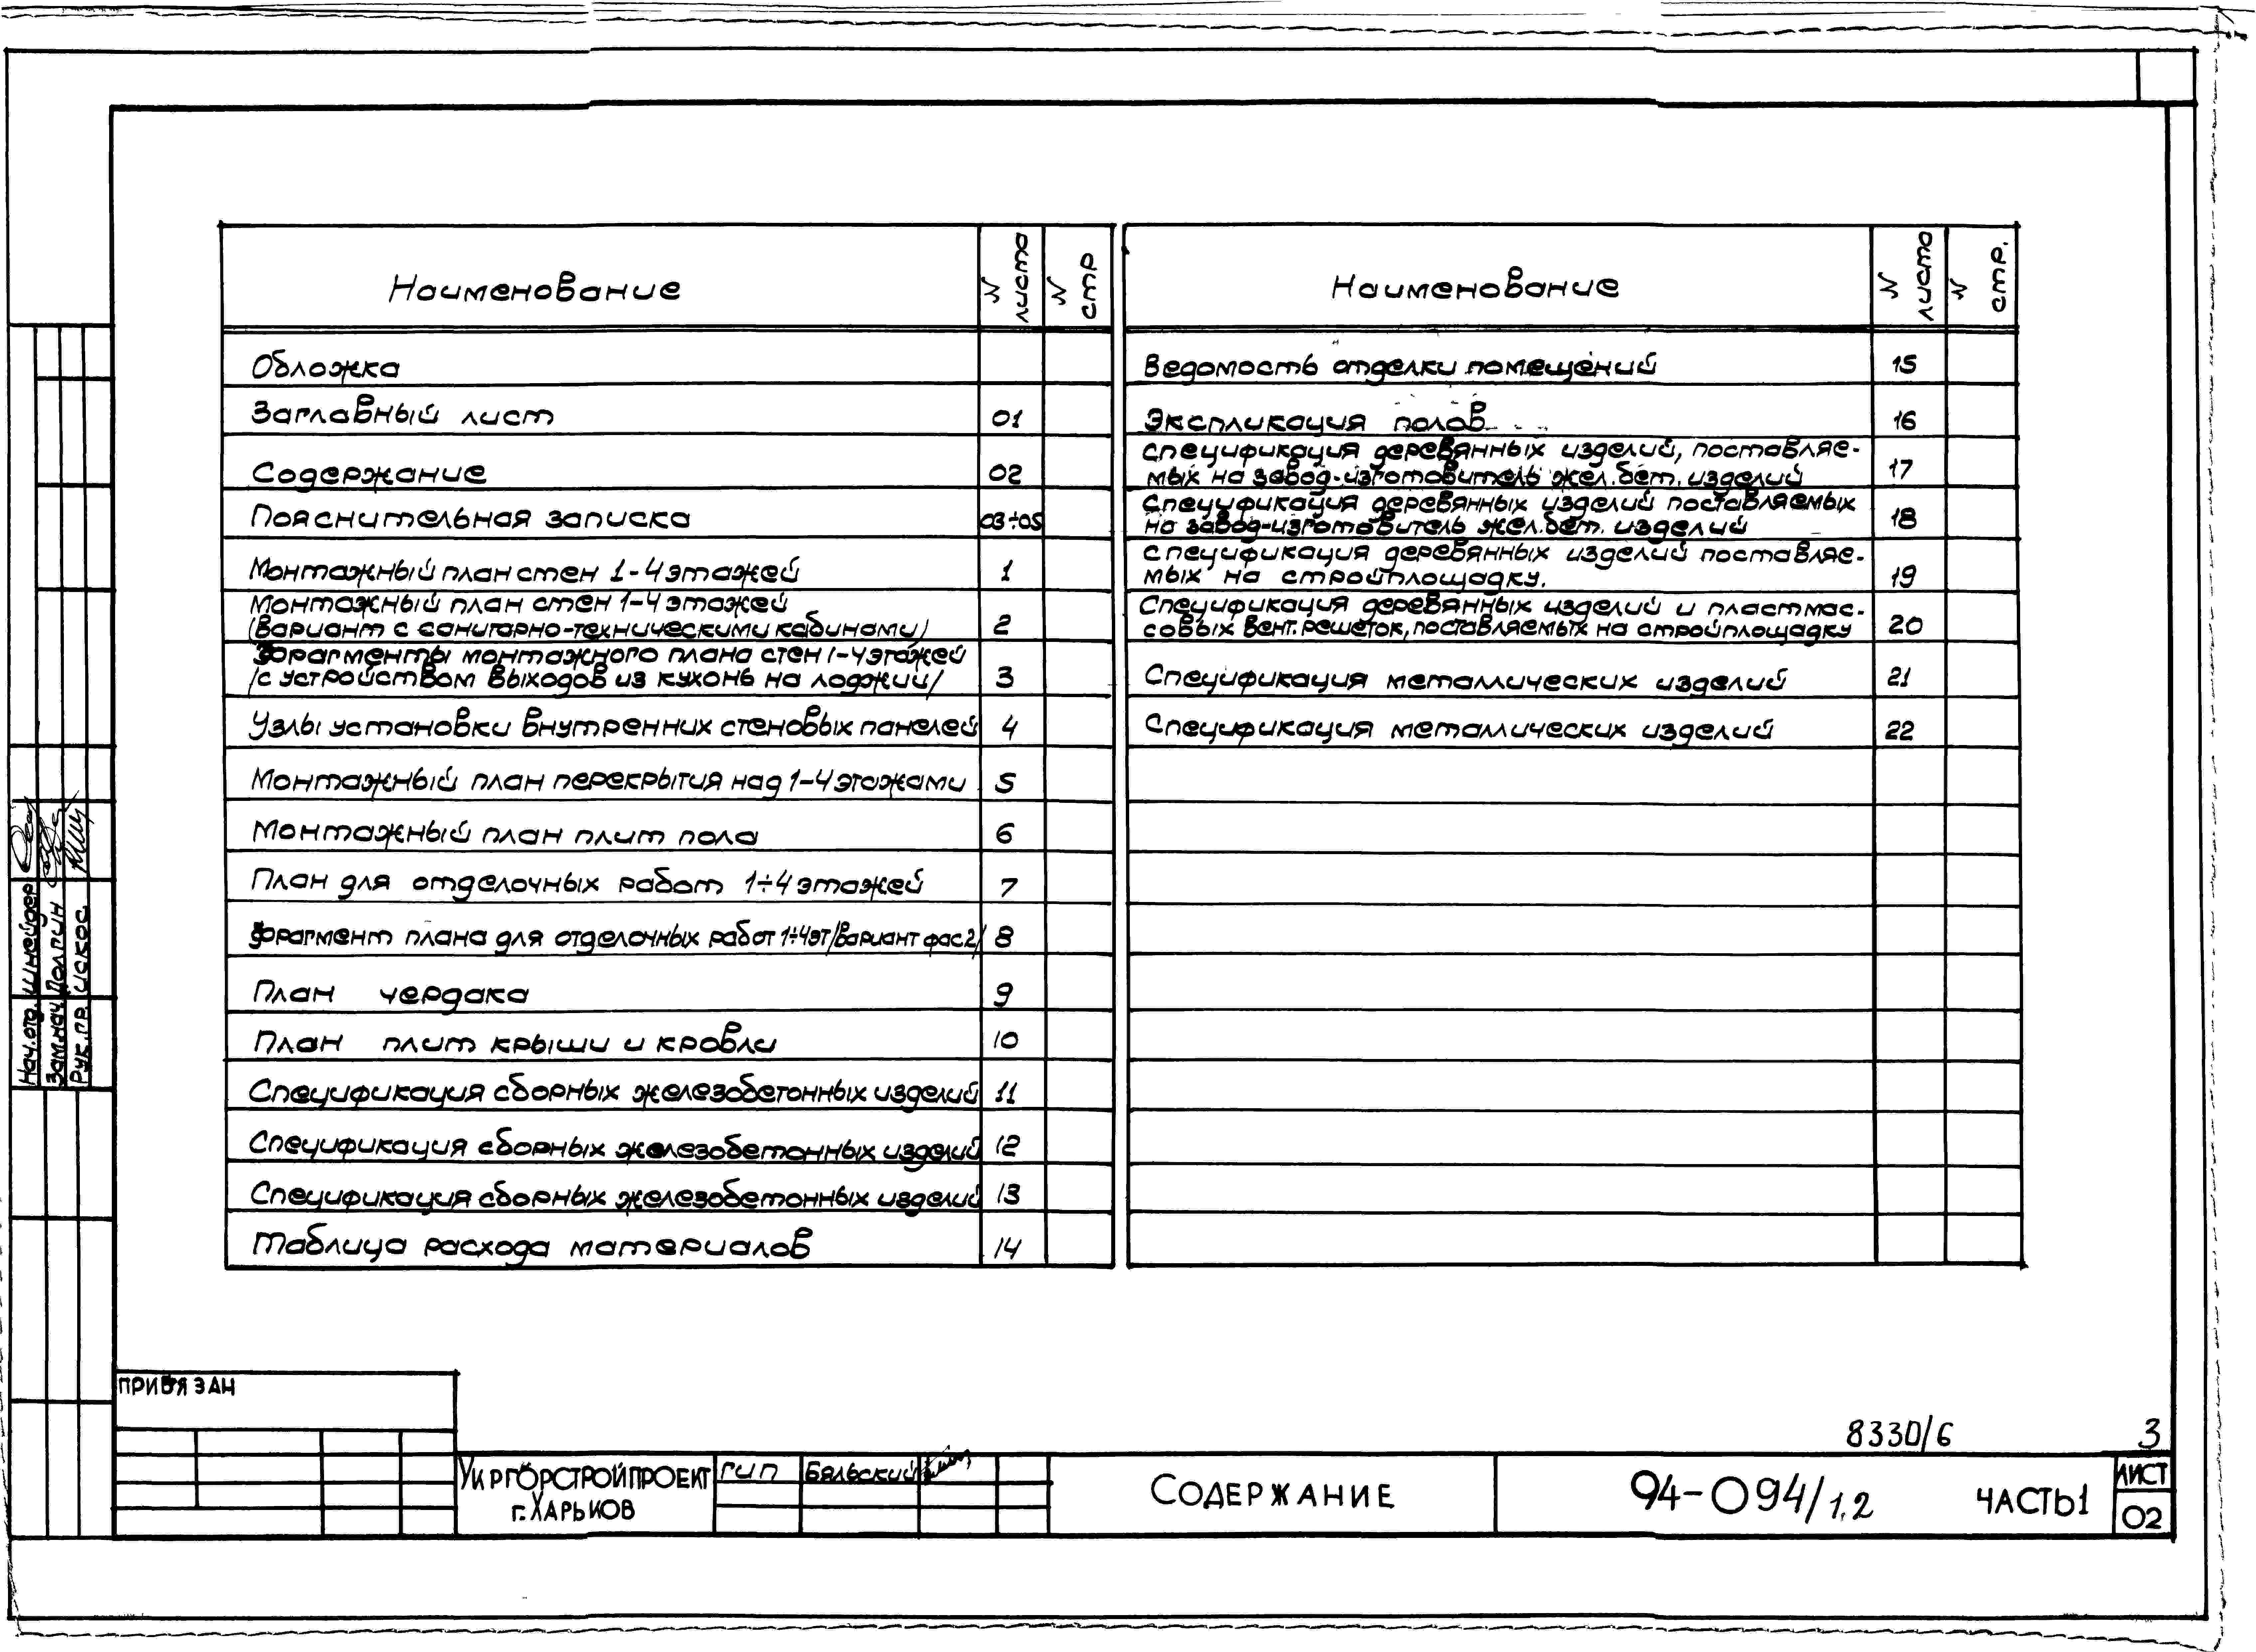 Наименование
N листа
N стр
Обложка
Заглавный лист 01
Содержание 02
Пояснительная записка 03÷05
Монтажный план стен 1-4 этажей 1
Монтажный план стен 1-4 этажей
(вариант с санитарно-техническими кабинами) 2
Фрагменты монтажного плана стен 1-4 этажей
/с устройством выходов из кухонь на лоджии/ 3
Узлы установки внутренних стеновых панелей 4
Монтажный план перекрытия над 1-4 этажами 5
Монтажный план плит пола 6
План для отделочных работ 1÷4 этажей 7
Фрагмент плана для отделочных работ 1÷4эт/вариант фас.2/ 8
План чердака 9
План плит крыши и кровли 10
Спецификация сборных железобетонных изделий 11
Спецификация сборных железобетонных изделий 12
Спецификация сборных железобетонных изделий 13
Таблица расхода материалов 14
Наименование
N листа
N стр.
Ведомость отделки помещений 15
Экспликация полов 16
Спецификация деревянных изделий, поставляе-
мых на завод-изготовитель жел.бет. изделий 17
Спецификация деревянных изделий поставляемых
на завод-изготовитель жел.бет. изделий 18
Спецификация деревянных изделий поставляе-
мых на стройплощадку. 19
Спецификация деревянных изделий и пластмас-
совых вент.решеток, поставляемых на стройплощадку 20
Спецификация металлических изделий 21
Спецификация металлических изделий 22
Нач.отд. Шнейдер
Зам.нач. Долгин
Рук.пр. Искос
ПРИВЯЗАН
8330/6 3
УКРГОРСТРОЙПРОЕКТ
г.ХАРЬКОВ
ГИП Бяльский
СОДЕРЖАНИЕ
94-094/1.2 ЧАСТЬ1
ЛИСТ
02